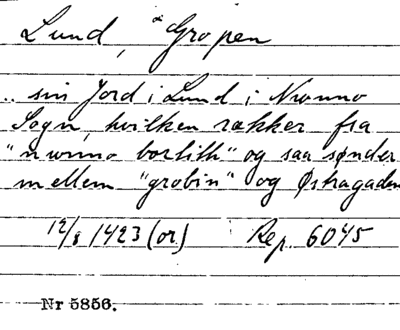 Lund, å Gropen
.. sin Jord i Lund i Nunno
Sogn, hvilken rækker fra
"nunno borlith" og saa sønder
mellem "grobin" og Østragaden
12/8 1423 (or) Rep. 6045
Nr 5856.